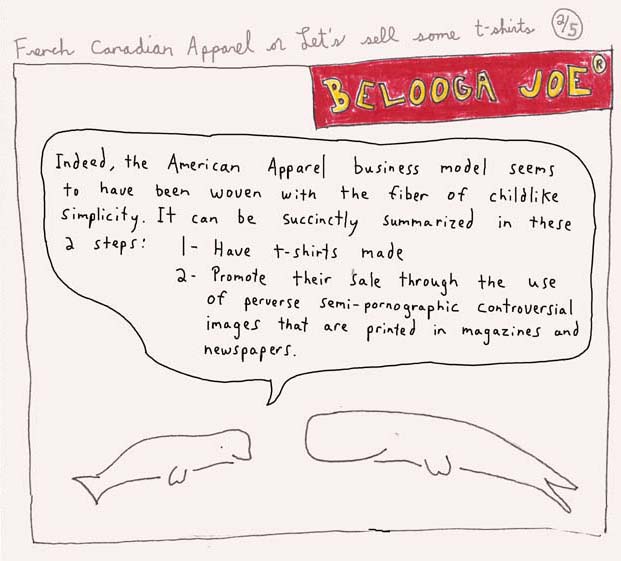 French Canadian Apparel or Let's sell some t-shirts 2/5
BELOOGA JOE®
Indeed, the American Apparel business model seems
to have been woven with the fiber of childlike
simplicity. It can be succinctly summarized in these
2 steps: 1- Have t-shirts made
2- Promote their sale through the use
of perverse semi-pornographic controversial
images that are printed in magazines and
newspapers.